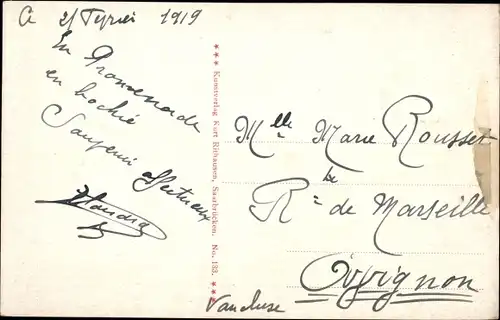 2/ Fevrier 1919
En Promenade
en bochie
Souvenir Affectueux
*** Kunstverlag Kurt Rithausen, Saarbrücken. No. 133. ***
Mlle Marie Rousset
Re de Marseille
Avignon
Vaucluse